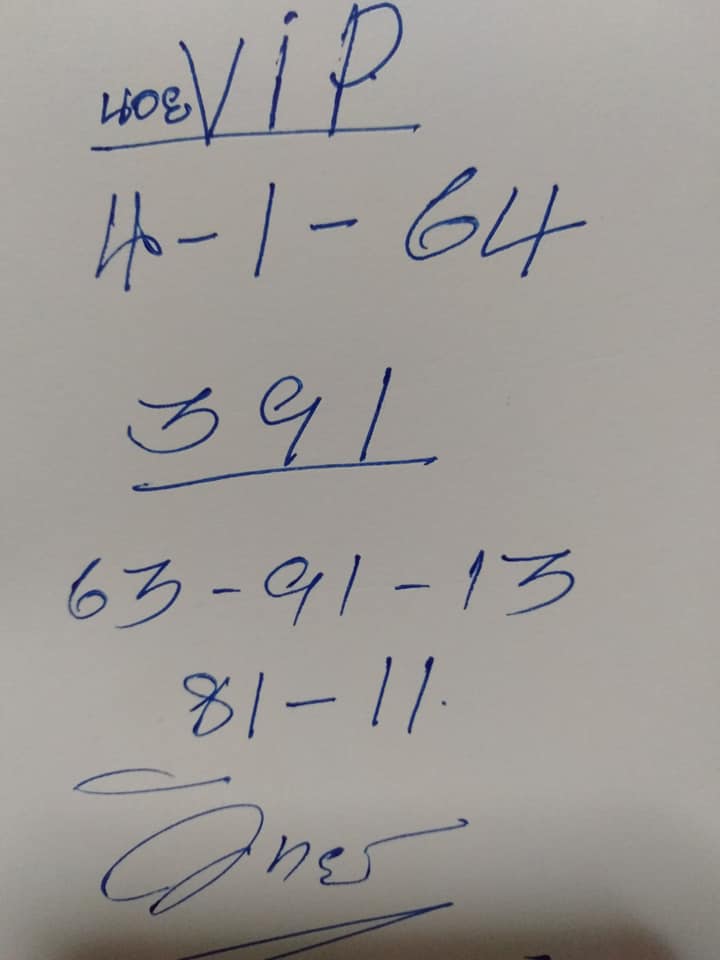 ViP
4-1-64
391
63-91-13
81-11.